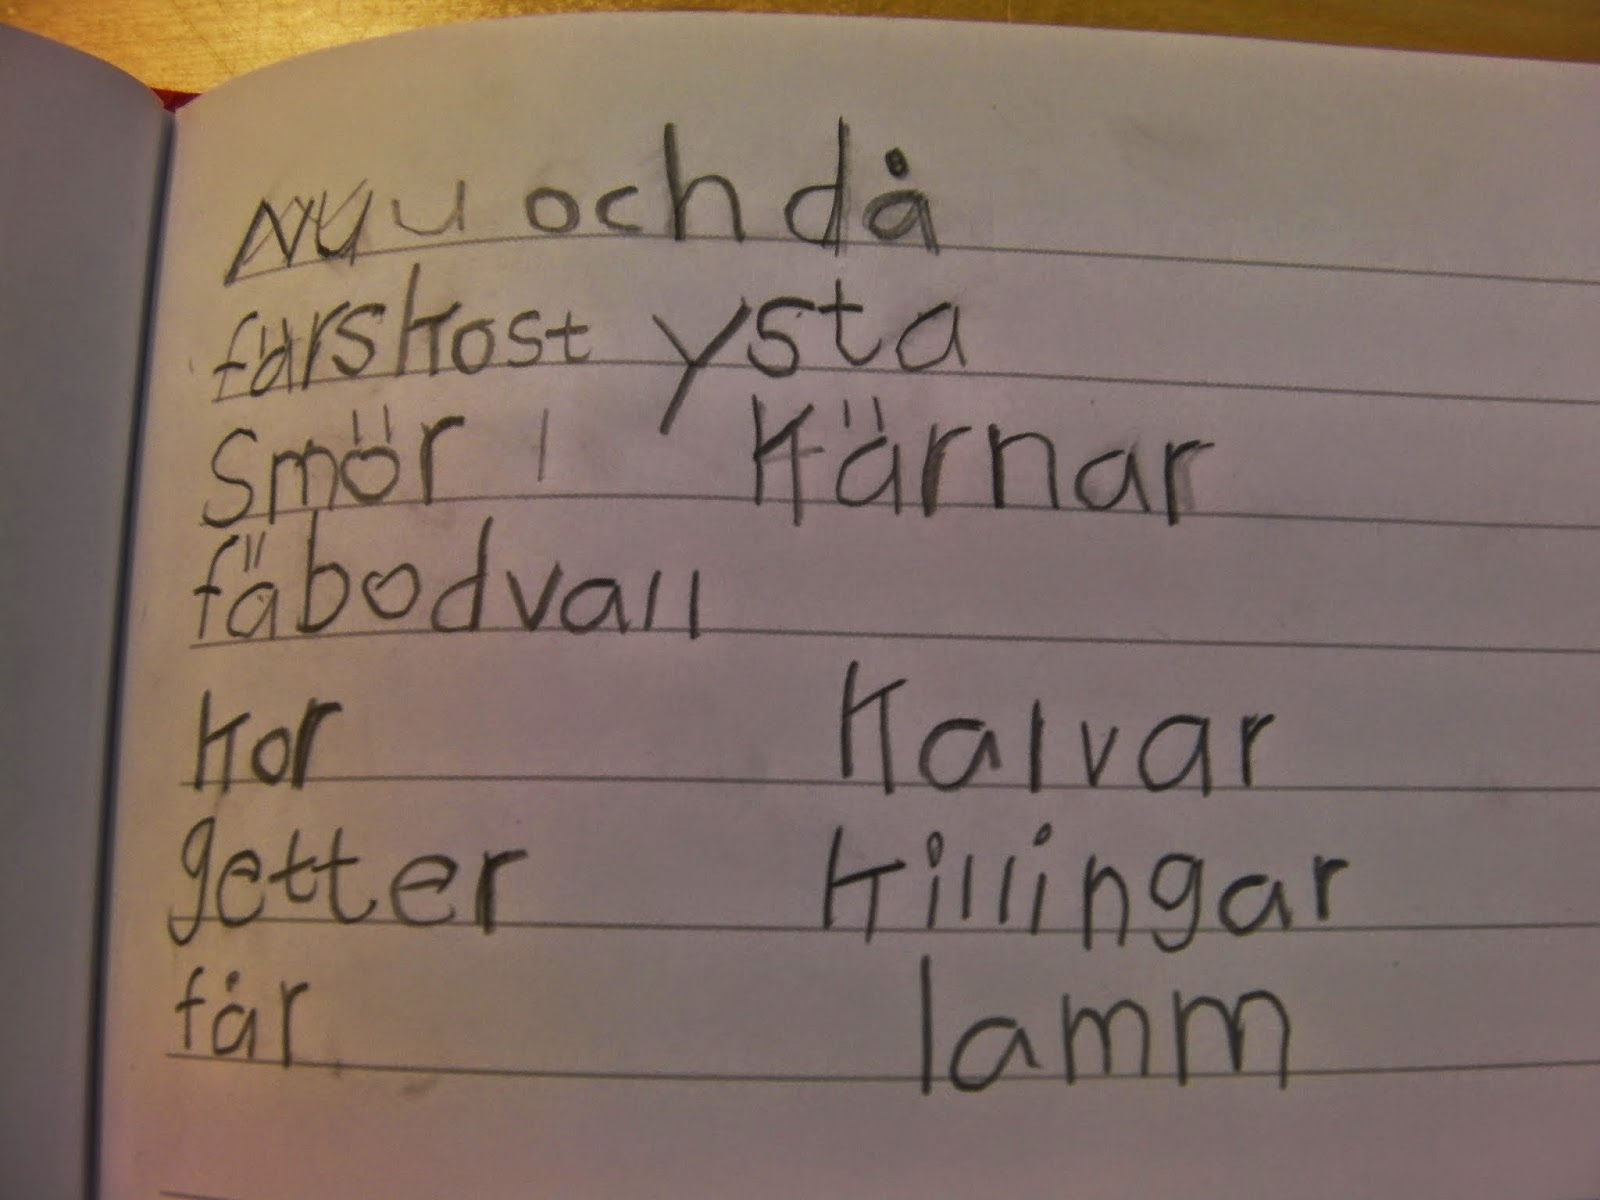 Nu och då
färskost ysta
Smör kärnar
fäbodvall
kor kalvar
getter killingar
får lamm